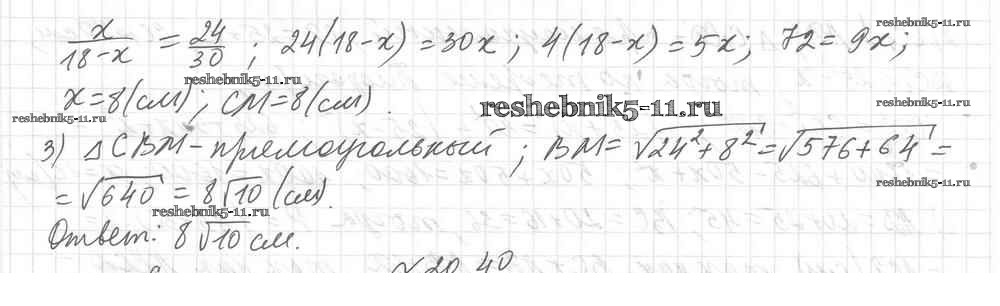 reshebnik5-11.ru
x/(18-x) = 24/30 ; 24(18-x)=30x ; 4(18-x)=5x ; 72=9x ;
reshebnik5-11.ru
x=8(см) ; CM=8(см)
reshebnik5-11.ru reshebnik5-11.ru
reshebnik5-11.ru
3) △CBM-прямоугольный ; BM=√(24²+8²)=√(576+64)=
=√640 = 8√10 (см).
reshebnik5-11.ru
reshebnik5-11.ru
Ответ: 8√10 см.
№20.40